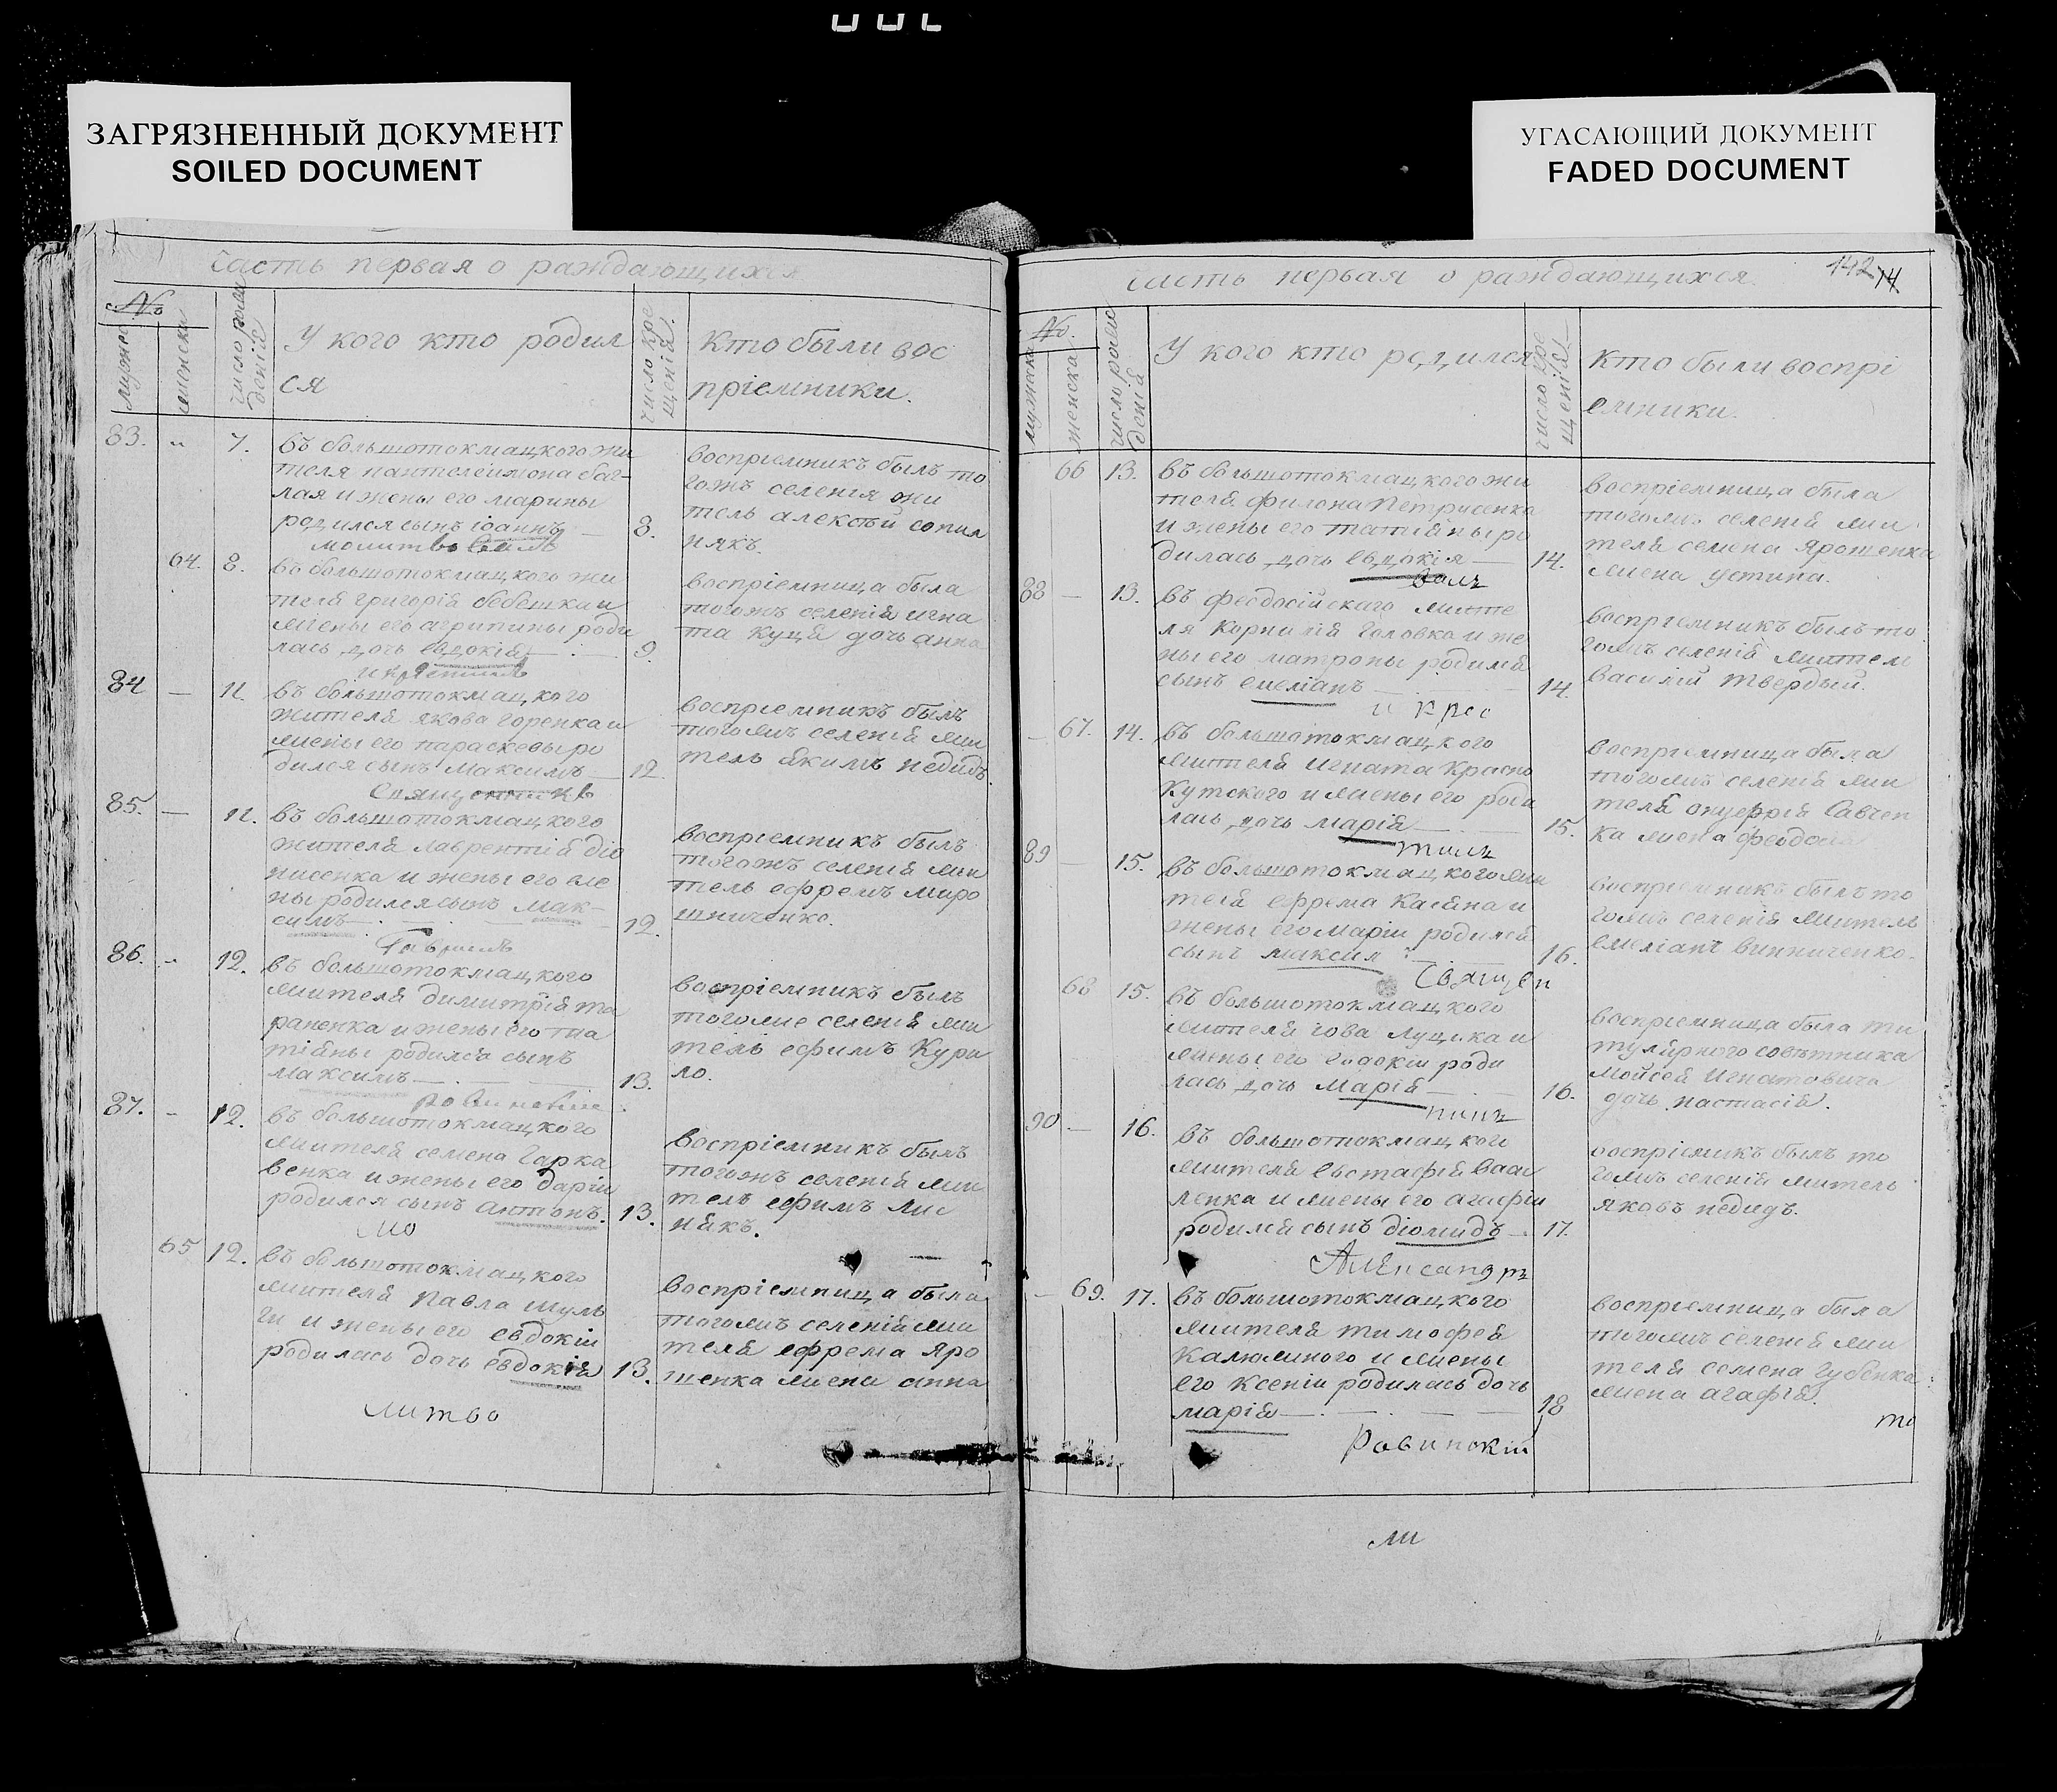 ЗАГРЯЗНЕННЫЙ ДОКУМЕНТ
SOILED DOCUMENT
УГАСАЮЩИЙ ДОКУМЕНТ
FADED DOCUMENT
Часть первая о раждающихся
№
мужеска
женска
число рожденія
У кого кто родил
ся
число кре
щенія.
Кто были вос
пріемники.
83. „ 7.
въ большотокмацкого жи
теля пантелеимона баг-
лая и жены его марины
родился сынъ іоаннъ
8.
воспріемникъ былъ то
гожъ селенія жи
тель алексѣй сопил
някъ.
молитвовалъ
64. 8.
въ большотокмацкого жи
теля григорія бебешка и
жены его агрипины роди
лась дочь евдокія
9.
воспріемница была
тогожъ селенія игна
та куця дочь анна
и крестилъ
84 — 11.
въ большотокмацкого
жителя якова горенка и
жены его параскевы ро
дился сынъ максимъ
12.
воспріемникъ былъ
тогожъ селенія жи
тель якимъ недидъ
Священникъ
85. — 11.
въ большотокмацкого
жителя лаврентія діо
нисенка и жены его еле
ны родился сынъ мак-
симъ
12.
воспріемникъ былъ
тогожъ селенія жи
тель ефремъ миро
шниченко.
Гавриилъ
86. „ 12.
въ большотокмацкого
жителя димитрія та
раненка и жены его та
тіяны родился сынъ
максимъ
13.
воспріемникъ былъ
тогоже селенія жи
тель ефимъ Кури
ло.
87. - 12.
въ большотокмацкого
жителя семена Гарка
венка и жены его даріи
родился сынъ антонъ.
13.
воспріемникъ былъ
тогожъ селенія жи
тель ефимъ лис
някъ.
мо
65 12.
въ большотокмацкого
жителя павла шуль
ги и жены его евдокіи
родилась дочь евдокія
13.
воспріемница была
тогожъ селенія жи
теля ефрема яро
шенка жена анна
литво
Часть первая о раждающихся.
142
74.
№.
мужеска
женска
число рожденія
У кого кто родился
число кре
щенія
Кто были воспрі
емники.
66 13.
въ большотокмацкого жи
теля филона Петрусенка
и жены его татіяны ро
дилась дочь евдокія
14.
воспріемница была
тогожъ селенія жи
теля семена ярошенка
жена устина.
валъ
88 — 13.
въ феодосійскаго жите
ля корнилія головка и же
ны его матроны родился
сынъ емеліанъ
14.
воспріемникъ былъ то
гожъ селенія житель
василій твердый.
и крес
67. 14.
въ большотокмацкого
жителя игната Красно
Кутского и жены его роди
лась дочь марія
15.
воспріемница была
тогожъ селенія жи
теля онуфрія савчен
ка жена
тилъ
89 — 15.
въ большотокмацкого жи
теля ефрема Касяна и
жены его маріи родился
сынъ максим
16.
воспріемникъ былъ то
гожъ селенія житель
емеліанъ винниченко.
Священ
68 15.
въ большотокмацкого
жителя іова луцика и
жены его евдокіи роди
лась дочь марія
16.
воспріемница была ти
тулярного совѣтника
мойсея игнатовича
дочь настасія.
никъ
90 — 16.
въ большотокмацкого
жителя евстафія васи
ленка и жены его агафіи
родился сынъ діомидъ
17.
воспріемникъ былъ то
гожъ селенія житель
яковъ недидъ.
Александръ
— 69. 17.
въ большотокмацкого
жителя тимофея
калюжного и жены
его ксеніи родилась дочь
марія
18
воспріемница была
тогожъ селенія жи
теля семена губенка
жена агафія.
то
Равинскій
ли